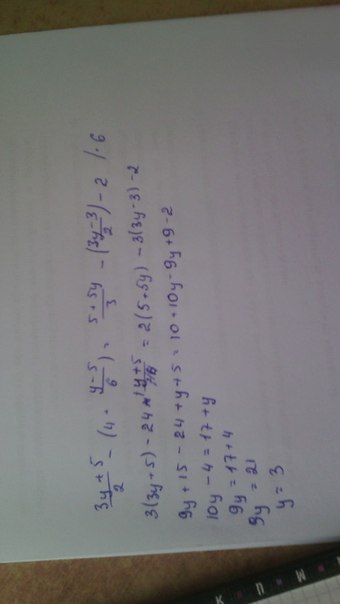 (3y+5)/2 - (4 · (y-5)/6) = (5+5y)/3 - ((3y-3)/2) - 2 /·6
3(3y+5) - 24 (y+5) = 2(5+5y) - 3(3y-3) - 2
9y + 15 - 24 + y + 5 = 10 + 10y - 9y + 9 - 2
10y - 4 = 17 + y
9y = 17 + 4
9y = 21
y = 3